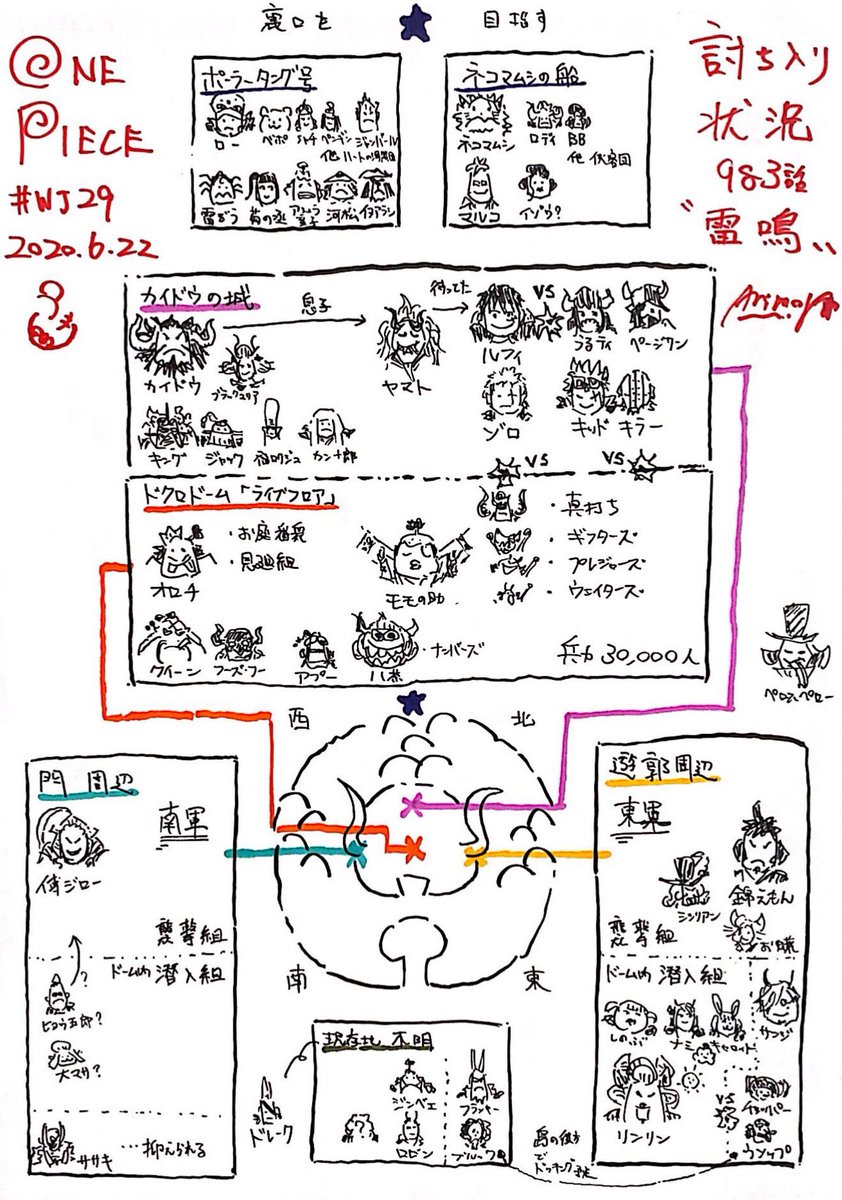 裏口を
目指す
ONE
PIECE
#WJ29
2020.6.22
討ち入り
状況
983話
〝雷鳴〟
ポーラータング号
ロー
ベポ
シャチ
ペンギン
ジャンバール
雷ぞう
菊の丞
アシュラ童子
河松
イヌアラシ
ネコマムシの船
ネコマムシ
ロディ
BB
他 侠客団
マルコ
イゾウ?
カイドウの城
息子
待ってた
VS
カイドウ
ブラックマリア
ヤマト
ルフィ
うるティ
ページワン
キング
ジャック
福ロクジュ
カン十郎
ゾロ
キッド
キラー
VS
VS
ドクロドーム「ライブフロア」
オロチ
・お庭番衆
・見廻組
モモの助
・真打ち
・ギフターズ
・プレジャーズ
・ウェイターズ
クイーン
フーズ・フー
アプー
八茶
・ナンバーズ
兵力 30,000人
ペロスペロー
西
北
南
東
門周辺
南軍
侍ジロー
襲撃組
ドーム内 潜入組
?
ヒョウ五郎?
大マサ?
ササキ
…抑えられる
遊郭周辺
東軍
錦えもん
シシリアン
お蝶
襲撃組
ドーム内 潜入組
しのぶ
ナミ
キャロット
サンジ
リンリン
VS
チョッパー
ウソップ
現在地 不明
ドレーク
ジンベエ
フランキー
?
ロビン
ブルック
島の後方
で
ドッキング